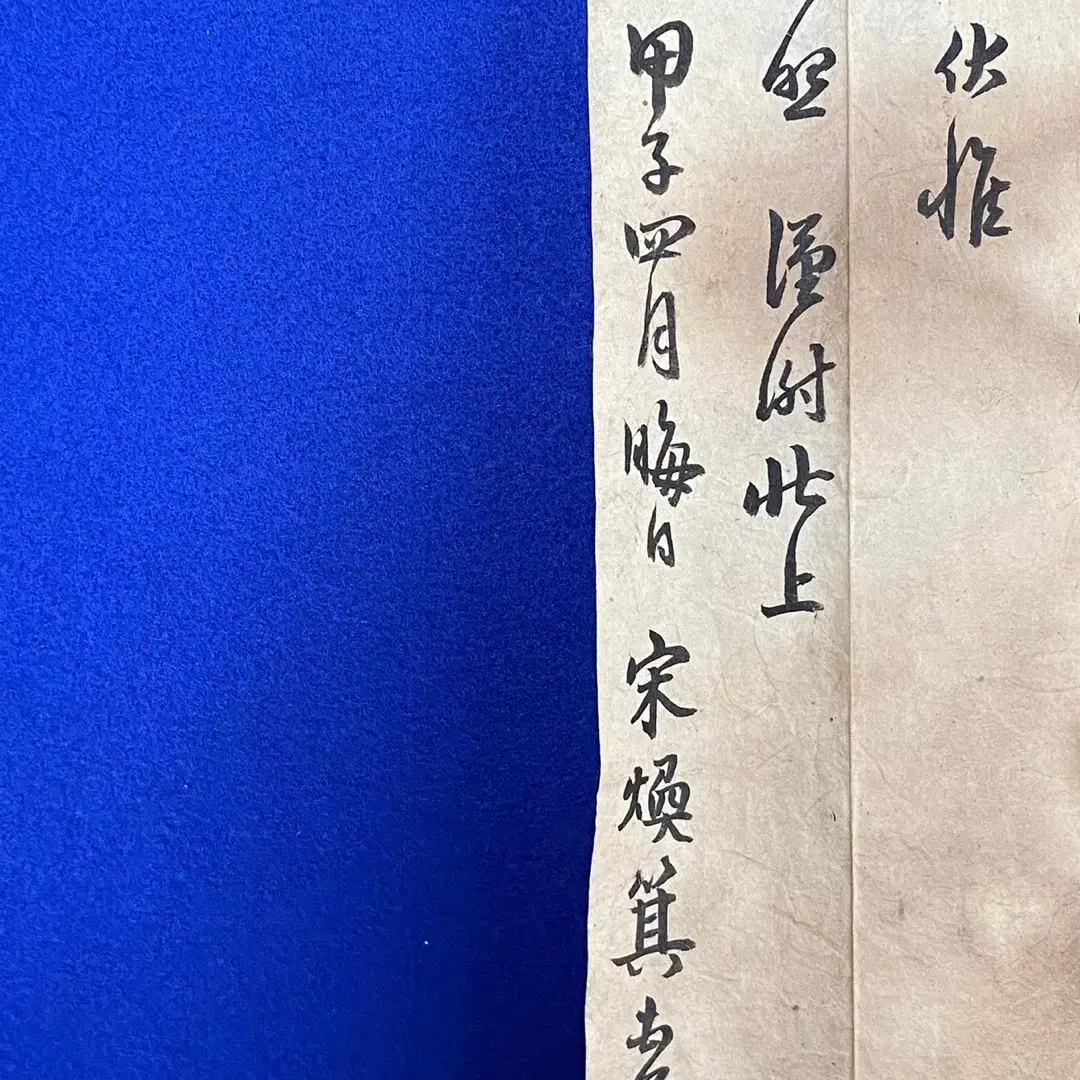 伏惟
照 謹附狀上
甲子四月晦日 宋煥箕